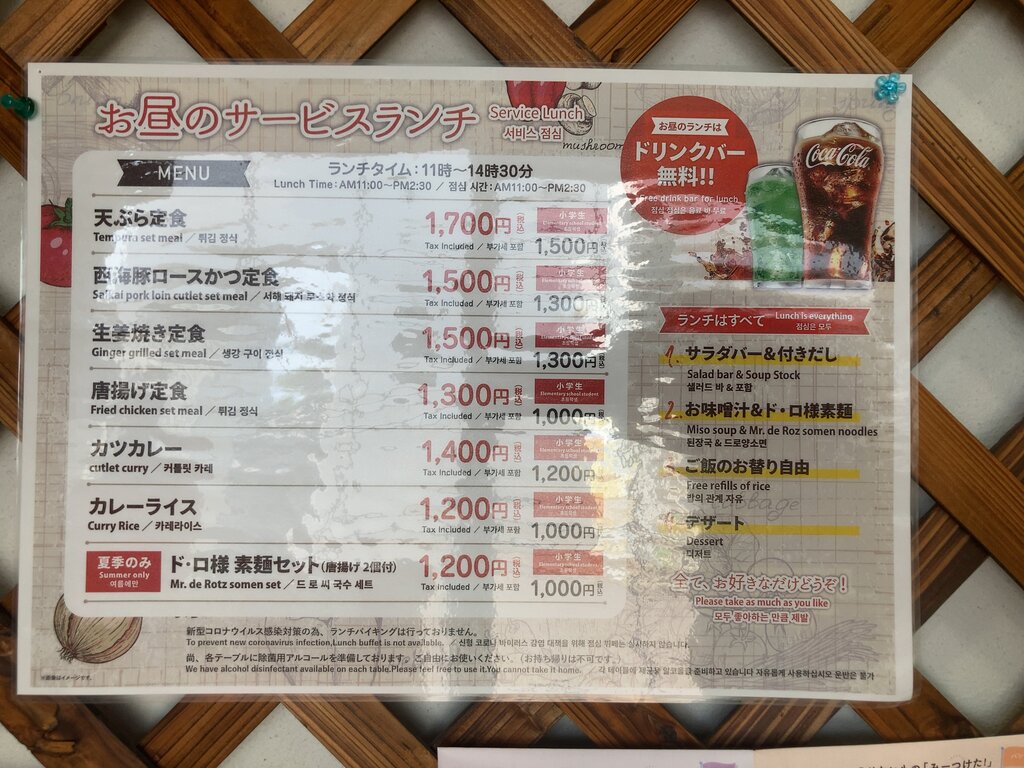 お昼のサービスランチ
Service Lunch
서비스 점심
mushroom
MENU
ランチタイム：11時～14時30分
Lunch Time：AM11:00～PM2:30 ／ 점심 시간：AM11:00～PM2:30
天ぷら定食
Tempura set meal ／ 튀김 정식
1,700円(税込)
Tax Included ／ 부가세 포함
小学生
Elementary school student
초등학생
1,500円
西海豚ロースかつ定食
Saikai pork loin cutlet set meal ／ 서해 돼지 로스 정식
1,500円(税込)
Tax Included ／ 부가세 포함
小学生
Elementary school student
초등학생
1,300円
生姜焼き定食
Ginger grilled set meal ／ 생강 구이 정식
1,500円(税込)
Tax Included ／ 부가세 포함
小学生
Elementary school student
초등학생
1,300円
唐揚げ定食
Fried chicken set meal ／ 튀김 정식
1,300円(税込)
Tax Included ／ 부가세 포함
小学生
Elementary school student
초등학생
1,000円
カツカレー
cutlet curry ／ 커틀릿 카레
1,400円(税込)
Tax Included ／ 부가세 포함
小学生
Elementary school student
초등학생
1,200円
カレーライス
Curry Rice ／ 카레라이스
1,200円(税込)
Tax Included ／ 부가세 포함
小学生
Elementary school student
초등학생
1,000円
夏季のみ
Summer only
여름에만
ド・ロ様 素麺セット(唐揚げ 2個付)
Mr. de Rotz somen set ／ 드 로 씨 국수 세트
1,200円(税込)
Tax Included ／ 부가세 포함
小学生
Elementary school student
초등학생
1,000円
お昼のランチは
ドリンクバー
無料!!
Free drink bar for lunch
점심 점심은 음료 바 무료
Coca-Cola
ランチはすべて
Lunch is everything
점심은 모두
1. サラダバー＆付きだし
Salad bar & Soup Stock
샐러드 바 & 포함
2. お味噌汁＆ド・ロ様素麺
Miso soup & Mr. de Roz somen noodles
된장국 & 드로양소면
ご飯のお替り自由
Free refills of rice
밥의 관계 자유
デザート
Dessert
디저트
全て、お好きなだけどうぞ！
Please take as much as you like
모두 좋아하는 만큼 제발
新型コロナウイルス感染対策の為、ランチバイキングは行っておりません。
To prevent new coronavirus infection,Lunch buffet is not available. ／ 신형 코로나 바이러스 감염 대책을 위해 점심 뷔페는 실시하지 않습니다.
尚、各テーブルに除菌用アルコールを準備しております。ご自由にお使いください。(お持ち帰りは不可です。)
We have alcohol disinfectant available on each table.Please feel free to use it.You cannot take it home. ／ 각 테이블에 제균용 알코올을 준비하고 있습니다 자유롭게 사용하십시오 운반은 불가
※画像はイメージです。
「みーつけた!」